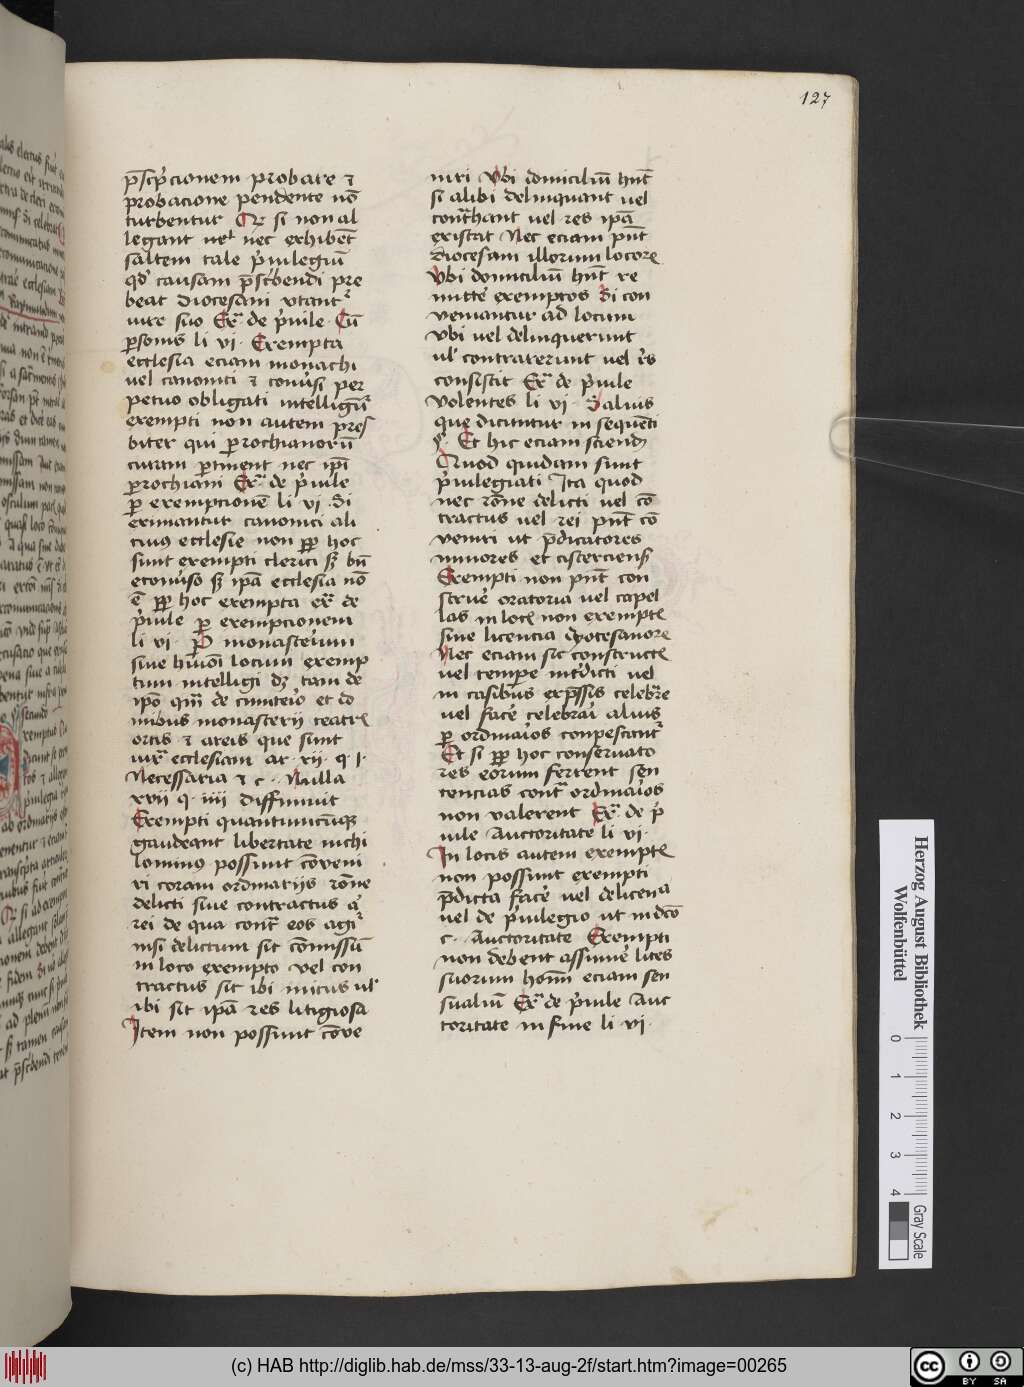 127
p̄sc͛pcionem probare ⁊
probacione pendente nō
turbentur Qr si non al
legant ut͛ nec exhibēt
saltem tale p͛uilegiū
qd͛ causam p̄sc͛bendi pre
beat diocesani vtant͛
iure suo Ex͛ de p͛uile Cū
p̱sonis li vi · Exempta
ecclesia eciam monachi
uel canonici ⁊ conu͛si per
petuo obligati intelligūt͛
exempti non autem pres
biter qui p̱rochianorū
curam p̱tinent nec ip̄i
p̱rochiani Ex͛ de p͛uile
p̱ exempcionē li vi · Si
eximantur canonici ali
cuiꝰ ecclesie non ꝓp̱ hoc
sunt exempti clerici sꝫ bn̄
econu͛so sꝫ ip̄a ecclesia nō
ē ꝓp̱ hoc exempta ex͛ de
p͛uile p̱ exempcionem
li vi · P monasterium
siue hm̄oi locum exemp
tum intelligi dꝫ tam de
ip̄o qm̄ de cimiteͥo et do
mibus monasterij ceatrꝭ
ortis ⁊ areis que sunt
iux͛ ecclesiam ar xii · q i ·
Necessaria ⁊ c · Nulla
xvii q · iiii diffiniuit
Exempti quantumcūqꝫ
gaudeant libertate nichi
lominꝰ possunt cōueni
ri coram ordinarijs rōne
delicti siue contractus a͛
rei de qua cont͛ eos agi͛
nisi delictum sit cōmissū
in loco exempto vel con
tractus sit ibi initus ul͛
ibi sit ip̄a res litigiosa
Item non possunt cōue
niri Vbi domiciliū hn̄t
si alibi delinquant uel
cont͛hant uel res ip̄a
existat Nec eciam pn̄t
diocesani illorum locorꝭ
Vbi domiciliū hn̄t re
mitte͛ exemptos Si con
veniantur ad locum
vbi uel delinquerunt
ul͛ contraxerunt uel r͛s
consistit Ex͛ de p͛uile
Volentes li vi · Salius
que dicitntur in sequēti
§ · Et hic eciam sciendꝫ
Quod quidam sunt
p͛uilegiati Ita quod
nec rōne delicti vel cō
tractus vel rei pn̄t cō
veniri ut p̄dicatores
minores et cisterciens͛
Exempti non pn̄t con
strue͛ oratoria uel capel
las in locꝭ non exemptꝭ
sine licencia dyocesanorꝭ
Nec eciam sic constructꝭ
uel tempe int͛dicti uel
in casibus exp̄ssis celebr͛e
uel face͛ celebrari alius
p̱ ordinaͥos conpescant͛
Et si ꝓp̱ hoc conseruato
res eorum ferrent sen
tencias cont͛ ordinaͥos
non valerent Ex͛ de p͛
uile Auctoritate li vi ·
In locis autem exemptꝭ
non possunt exempti
p̄dicta face͛ uel delicena
uel de p͛uilegio ut in dcō
c · Auctoritate Exempti
non debent assume͛ lites
suorum homi͛ eciam sen
sualiū Ex͛ de p͛uile Auc
toritate in fine li vi ·
Herzog August Bibliothek
Wolfenbüttel
0 1 2 3 4
Gray Scale
(c) HAB http://diglib.hab.de/mss/33-13-aug-2f/start.htm?image=00265
cc BY SA